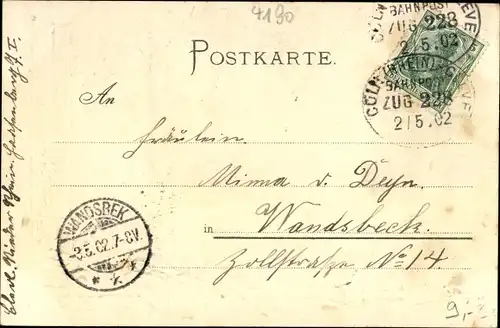 4190
CÖLN (RHEIN)
BAHNPOST
ZUG 228
2/5.02
POSTKARTE.
CÖLN (RHEIN)
BAHNPOST
ZUG 228
2/5.02
An
Fräulein
Minna v. Deyn.
in Wandsbeck.
Zollstraße No 14.
WANDSBEK
-3.5.02.7-8V
9,-